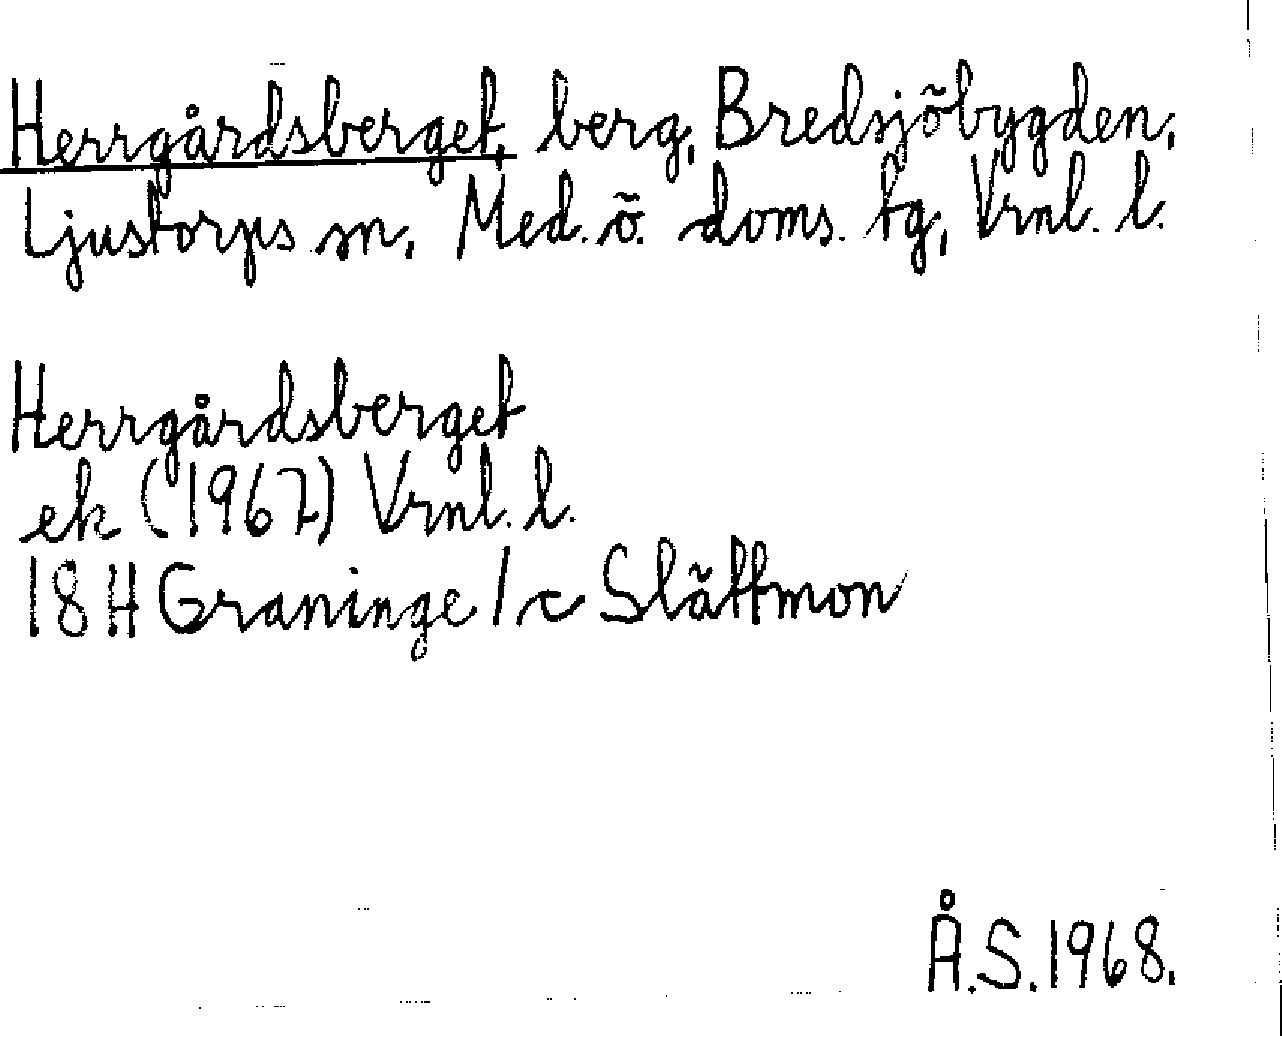 Herrgårdsberget, berg, Bredsjöbygden,
Ljustorps sn, Med. ö. doms. tg, Vrnl. l.
Herrgårdsberget
ek (1967) Vrnl. l.
18 H Graninge / c Slättmon
Å.S. 1968.